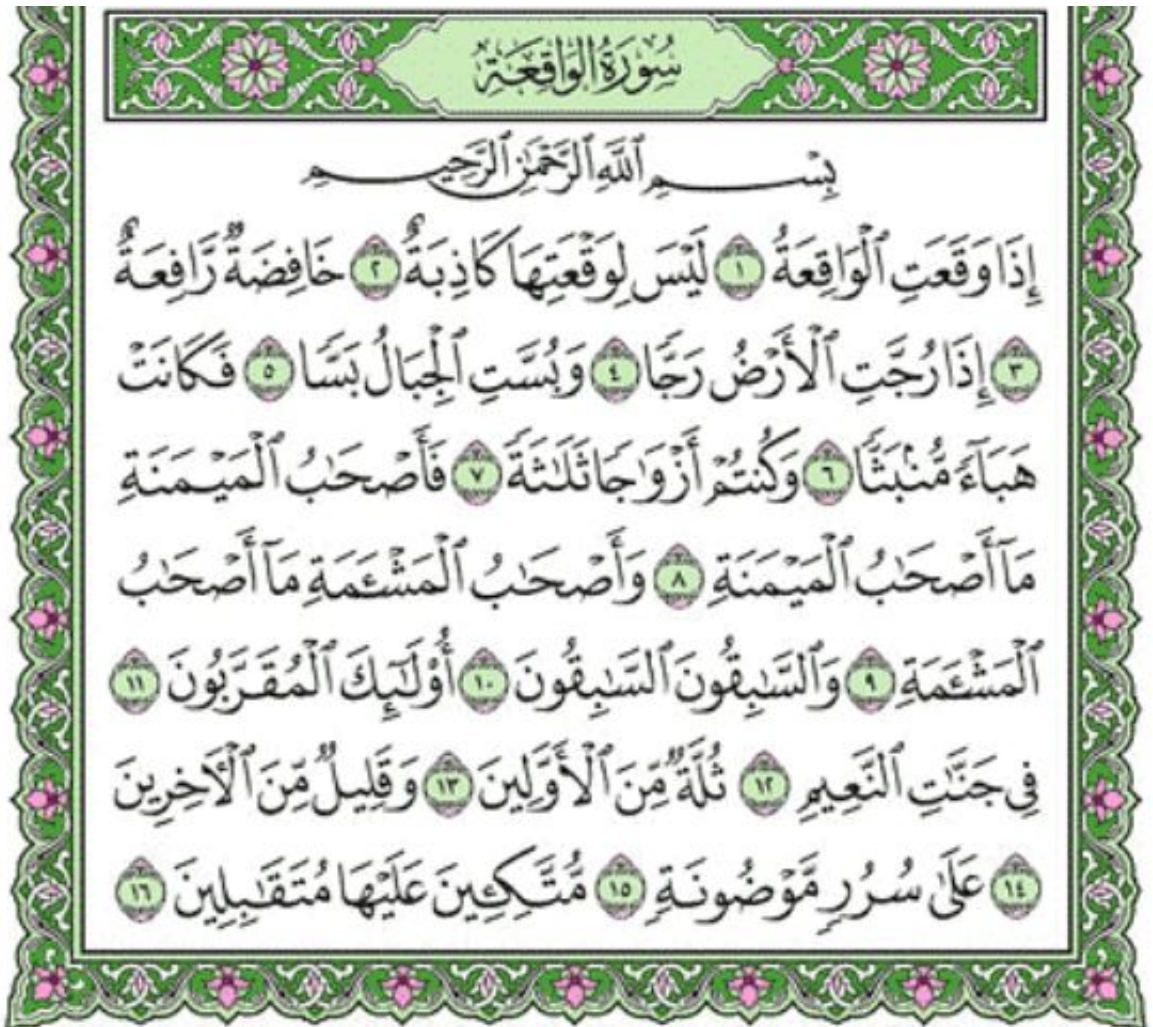 سُورَةُ الْوَاقِعَةِ
بِسْمِ ٱللَّهِ ٱلرَّحْمَٰنِ ٱلرَّحِيمِ
إِذَا وَقَعَتِ ٱلْوَاقِعَةُ ١ لَيْسَ لِوَقْعَتِهَا كَاذِبَةٌ ٢ خَافِضَةٌ رَّافِعَةٌ
٣ إِذَا رُجَّتِ ٱلْأَرْضُ رَجًّا ٤ وَبُسَّتِ ٱلْجِبَالُ بَسًّا ٥ فَكَانَتْ
هَبَآءً مُّنۢبَثًّا ٦ وَكُنتُمْ أَزْوَٰجًا ثَلَٰثَةً ٧ فَأَصْحَٰبُ ٱلْمَيْمَنَةِ
مَآ أَصْحَٰبُ ٱلْمَيْمَنَةِ ٨ وَأَصْحَٰبُ ٱلْمَشْـَٔمَةِ مَآ أَصْحَٰبُ
ٱلْمَشْـَٔمَةِ ٩ وَٱلسَّٰبِقُونَ ٱلسَّٰبِقُونَ ١٠ أُو۟لَٰٓئِكَ ٱلْمُقَرَّبُونَ ١١
فِى جَنَّٰتِ ٱلنَّعِيمِ ١٢ ثُلَّةٌ مِّنَ ٱلْأَوَّلِينَ ١٣ وَقَلِيلٌ مِّنَ ٱلْـَٔاخِرِينَ
١٤ عَلَىٰ سُرُرٍ مَّوْضُونَةٍ ١٥ مُّتَّكِـِٔينَ عَلَيْهَا مُتَقَٰبِلِينَ ١٦